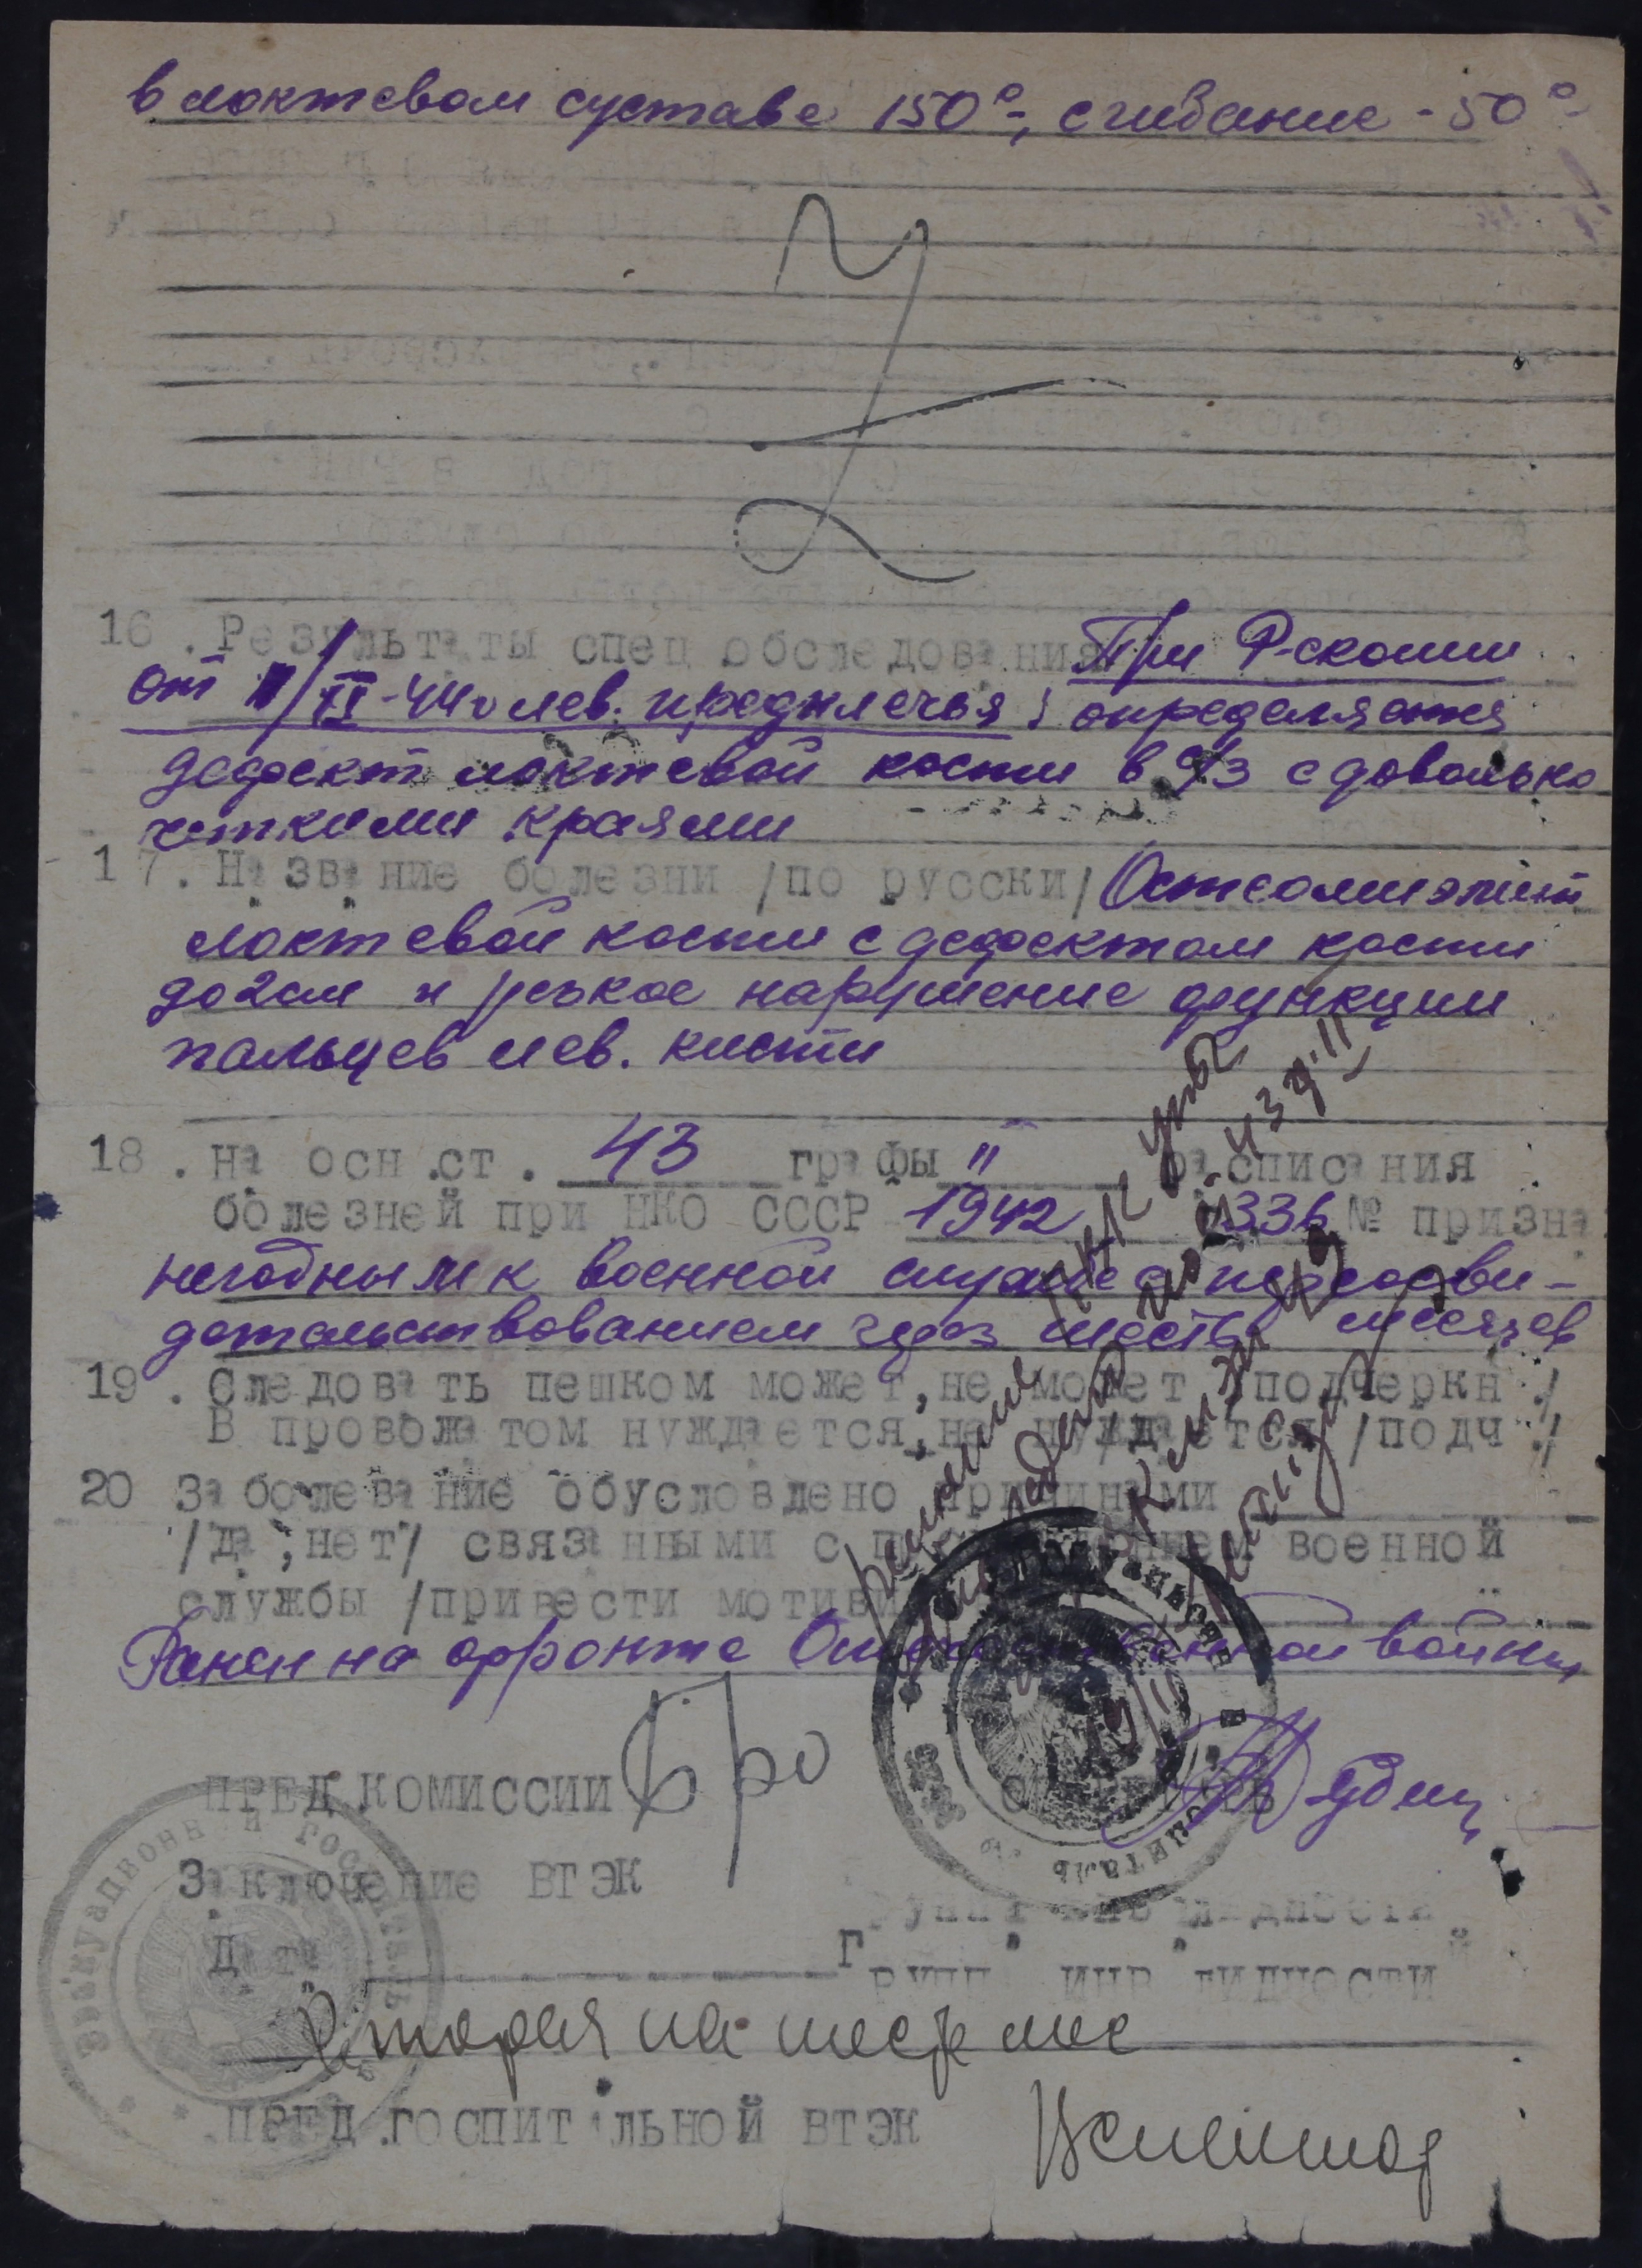 в локтевом суставе 150°-, сгибание - 50°
16. Результаты спец обследования При Р-скопии
от II-44 г лев. предплечья: определяется
дефект локтевой кости в с/3 с довольно
четкими краями
17. Название болезни /по русски/ Остеомиэлит
локтевой кости с дефектом кости
до 2 см и резкое нарушение функции
пальцев лев. кисти
18. На осн.ст. 43 графы II расписания
болезней при НКО СССР 1942 336 № призна
негодным к военной службе с переосви-
детельствованием через шесть месяцев
19. Следовать пешком может, не может /подчеркн./
В провожатом нуждается, не нуждается /подч./
20 Заболевание обусловлено причинами
/да, нет/ связанными с прохождением военной
службы /привести мотивы
Ранен на фронте Отечественной войны
ПРЕД КОМИССИИ
Заключение ВТЭК
Дата Группа инвалидности
Вторая на шесть мес
ПРЕД.ГОСПИТАЛЬНОЙ ВТЭК
ЭВАКУАЦИОННЫЙ ГОСПИТАЛЬ